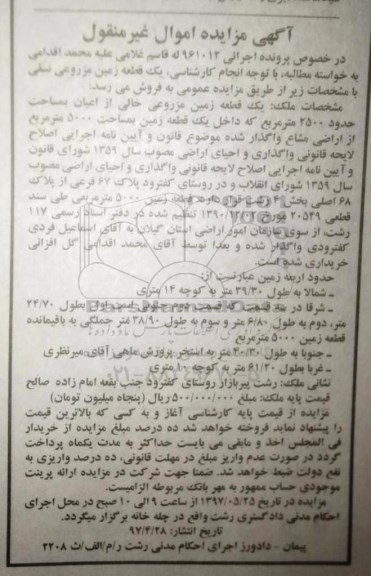 آگهی مزایده اموال غیرمنقول
در خصوص پرونده اجرائی ۹۶۱۰۱۳ له قاسم غلامی علیه محمد اقدامی
به خواسته مطالبه، با توجه انجام کارشناسی، یک قطعه زمین مزروعی سقی
با مشخصات زیر از طریق مزایده عمومی به فروش می رسد:
مشخصات ملک: یک قطعه زمین مزروعی خالی از اعیان بمساحت
حدود ۲۵۰۰ مترمربع که داخل یک قطعه زمین بمساحت ۵۰۰۰ مترمربع
از اراضی مشاع واگذار شده موضوع قانون و آیین نامه اجرایی اصلاح
لایحه قانونی واگذاری و احیای اراضی مصوب سال ۱۳۵۹ شورای قانون
و آیین نامه اجرایی اصلاح لایحه قانونی واگذاری و احیای اراضی مصوب
سال ۱۳۵۹ شورای انقلاب و در روستای گفترود پلاک ۶۷ فرعی از پلاک
۶۸ اصلی بخش ۴ رشت قرار دارد. قطعه زمین ۵۰۰۰ مترمربعی طی سند
قطعی ۲۰۵۴۹ مورخ تنظیم شده در دفتر اسناد رسمی ۱۱۷
رشت، از سوی سازمان امور اراضی استان گیلان به آقای اسماعیل فردی
کفترودی واگذار شده و بعدا توسط آقای محمد اقدامی گل افزانی
خریداری شده است.
حدود اربعه زمین عبارتست از:
ـ شمالا به طول ۳۹/۳۰ متر به کوچه ۱۴ متری
ـ شرقا در سه قسمت که قسمت دوم جنوبی است اول بطول ۲۲/۷۰
متر، دوم به طول ۶/۸۰ متر و سوم به طول ۳۸/۹۰ متر جملگی به باقیمانده
قطعه زمین ۵۰۰۰ مترمربع
ـ جنوبا به طول ۴۰/۳۰ متر به استخر پرورش ماهی آقای میر نظری
ـ غربا بطول ۶۱/۲۰ متر به کوچه ۱۰ متری
نشانی ملک: رشت پیربازار روستای گفترود جنب بقعه امام زاده صالح
قیمت پایه ملک: مبلغ ۵۰۰/۰۰۰/۰۰۰ ریال (پنجاه میلیون تومان)
مزایده از قیمت پایه کارشناسی آغاز و به کسی که بالاترین قیمت
را پیشنهاد نماید فروخته خواهد شد ده درصد مبلغ مزایده از خریدار
فی المجلس اخذ و مابقی می بایست حداکثر به مدت یکماه پرداخت
گردد در صورت عدم واریز مبلغ در مهلت قانونی، ده درصد واریزی به
نفع دولت ضبط خواهد شد. ضمنا جهت شرکت در مزایده ارائه پرینت
موجودی حساب ممهور به مهر بانک مربوطه الزامیست.
مزایده در تاریخ ۱۳۹۷/۰۵/۲۵ از ساعت ۹ الی ۱۰ صبح در محل اجرای
احکام مدنی دادگستری رشت واقع در چله خانه برگزار میگردد.
تاریخ انتشار: ۹۷/۴/۲۸
پیمان - دادورز اجرای احکام مدنی رشت ر/م/الف/ث ۲۲۰۸